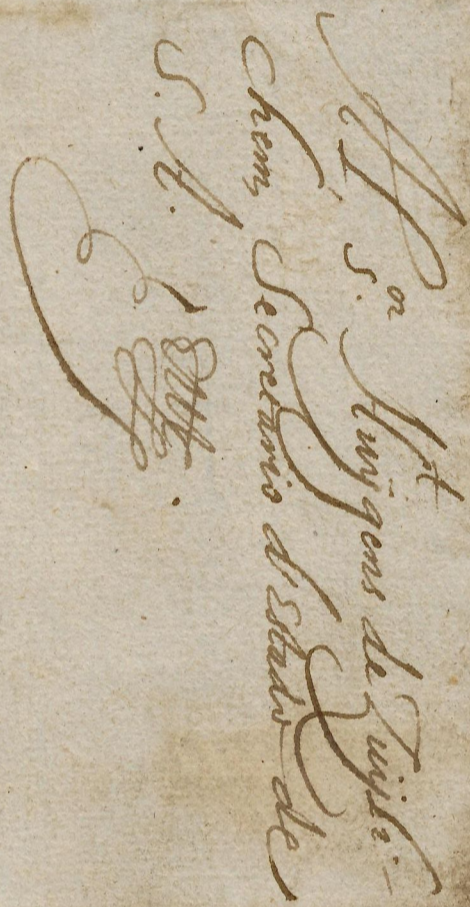 Al S.or Huijgens de Zuijli-
chem, Secretario d'Estado de
S. A.